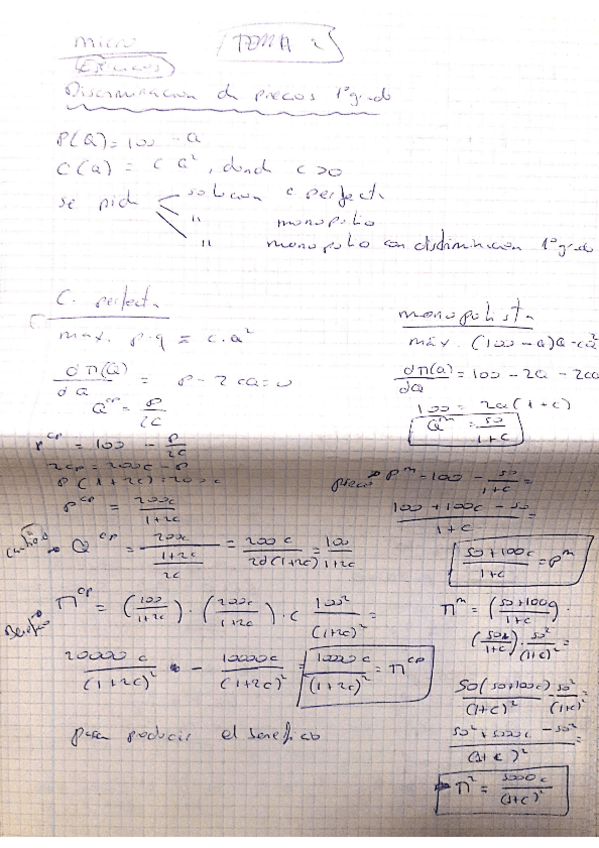 micro TEMA 2
(Ejercicios)
Discriminacion de precios 1º grado
P(Q) = 100 - Q
C(Q) = c Q², dond c > 0
se pide solucion c. perfecta
" monopolio
" monopolio con discriminacion 1º grado
C. perfecta
max. p·q = c·Q²
dΠ(Q)/dQ = P - 2cQ = 0
Q^cp = P/2c
P^cp = 100 - P/2c
2cp = 200c - P
P(1+2c) = 200c
P^cp = 200c/1+2c
Q^cp = 200c/1+2c/2c = 200c/2c(1+2c) = 100/1+2c
Beneficio Π^cp = (100/1+2c) · (200c/1+2c) · c 100²/(1+2c)² =
20000c/(1+2c)² - 10000c/(1+2c)² = 10000c/(1+2c)² = Π^cp
para producir el beneficio
monopolista
máx. (100-Q)Q - cQ²
dΠ(Q)/dQ = 100 - 2Q - 2cQ
100 = 2Q(1+c)
Q^m = 50/1+c
precio P^m = 100 - 50/1+c =
100 + 100c - 50/1+c
50+100c/1+c = P^m
Π^m = (50+100c/1+c) ·
(50/1+c) · 50²/(1+c)² =
50(50+100c)/(1+c)² - 50²/(1+c)² =
50² + 5000c - 50²/(1+c)² =
Π² = 5000c/(1+c)²